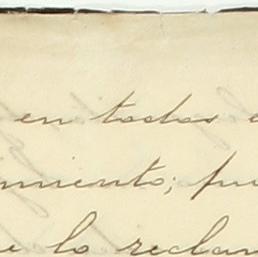 en todos
miento; pu
e lo reclam